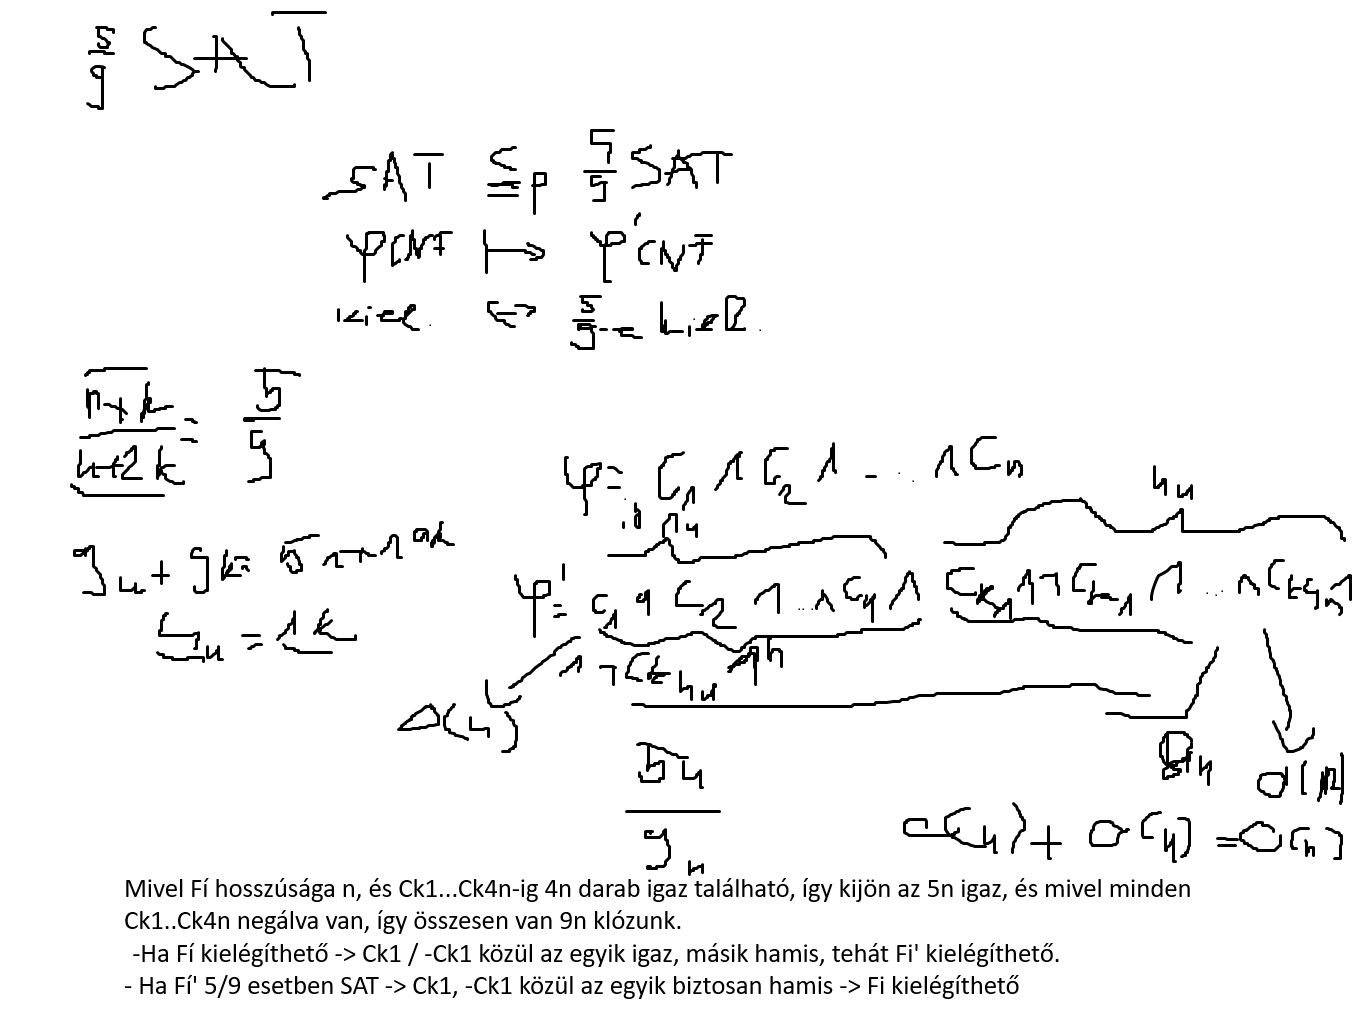 5/9 SAT
SAT ≤p 5/9 SAT
φ CNF ↦ φ' CNF
kiel. ⇔ 5/9-e kiel.
(n+k)/(n+2k) = 5/9
φ = C1 ∧ C2 ∧ ... ∧ Cn
4n
4n
9n + 9k = 5n + 10k
φ' = C1 ∧ C2 ∧ ... ∧ Cn ∧ Ck1 ∧ ¬Ck1 ∧ ... ∧ Ck4n ∧
4n = 1k
∧ ¬Ck4n
O(n)
8n O(n)
5n/9n
O(n) + O(n) = O(n)
Mivel Fí hosszúsága n, és Ck1...Ck4n-ig 4n darab igaz található, így kijön az 5n igaz, és mivel minden
Ck1..Ck4n negálva van, így összesen van 9n klózunk.
-Ha Fí kielégíthető -> Ck1 / -Ck1 közül az egyik igaz, másik hamis, tehát Fi' kielégíthető.
- Ha Fí' 5/9 esetben SAT -> Ck1, -Ck1 közül az egyik biztosan hamis -> Fi kielégíthető